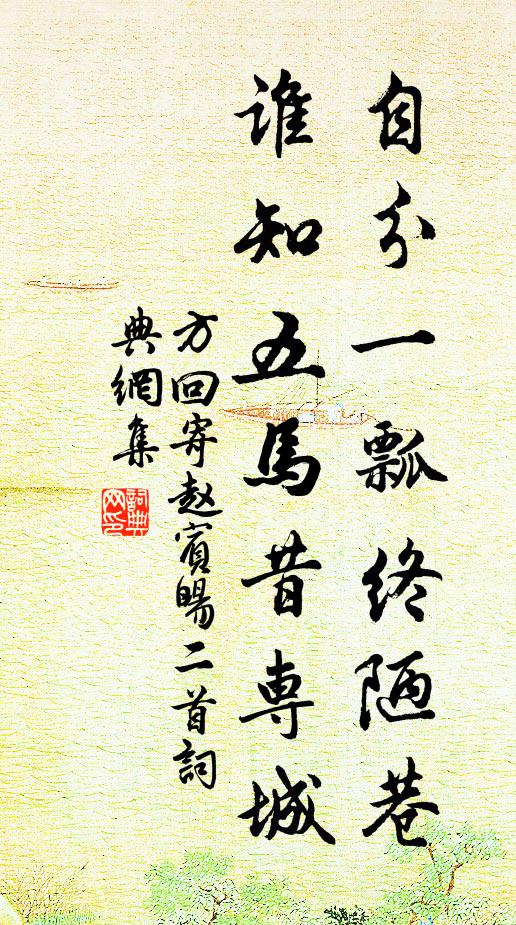 自分一瓢终陋巷
谁知五馬昔専城
方回寄赵賓暘二首詞
典網集
詞典
网印